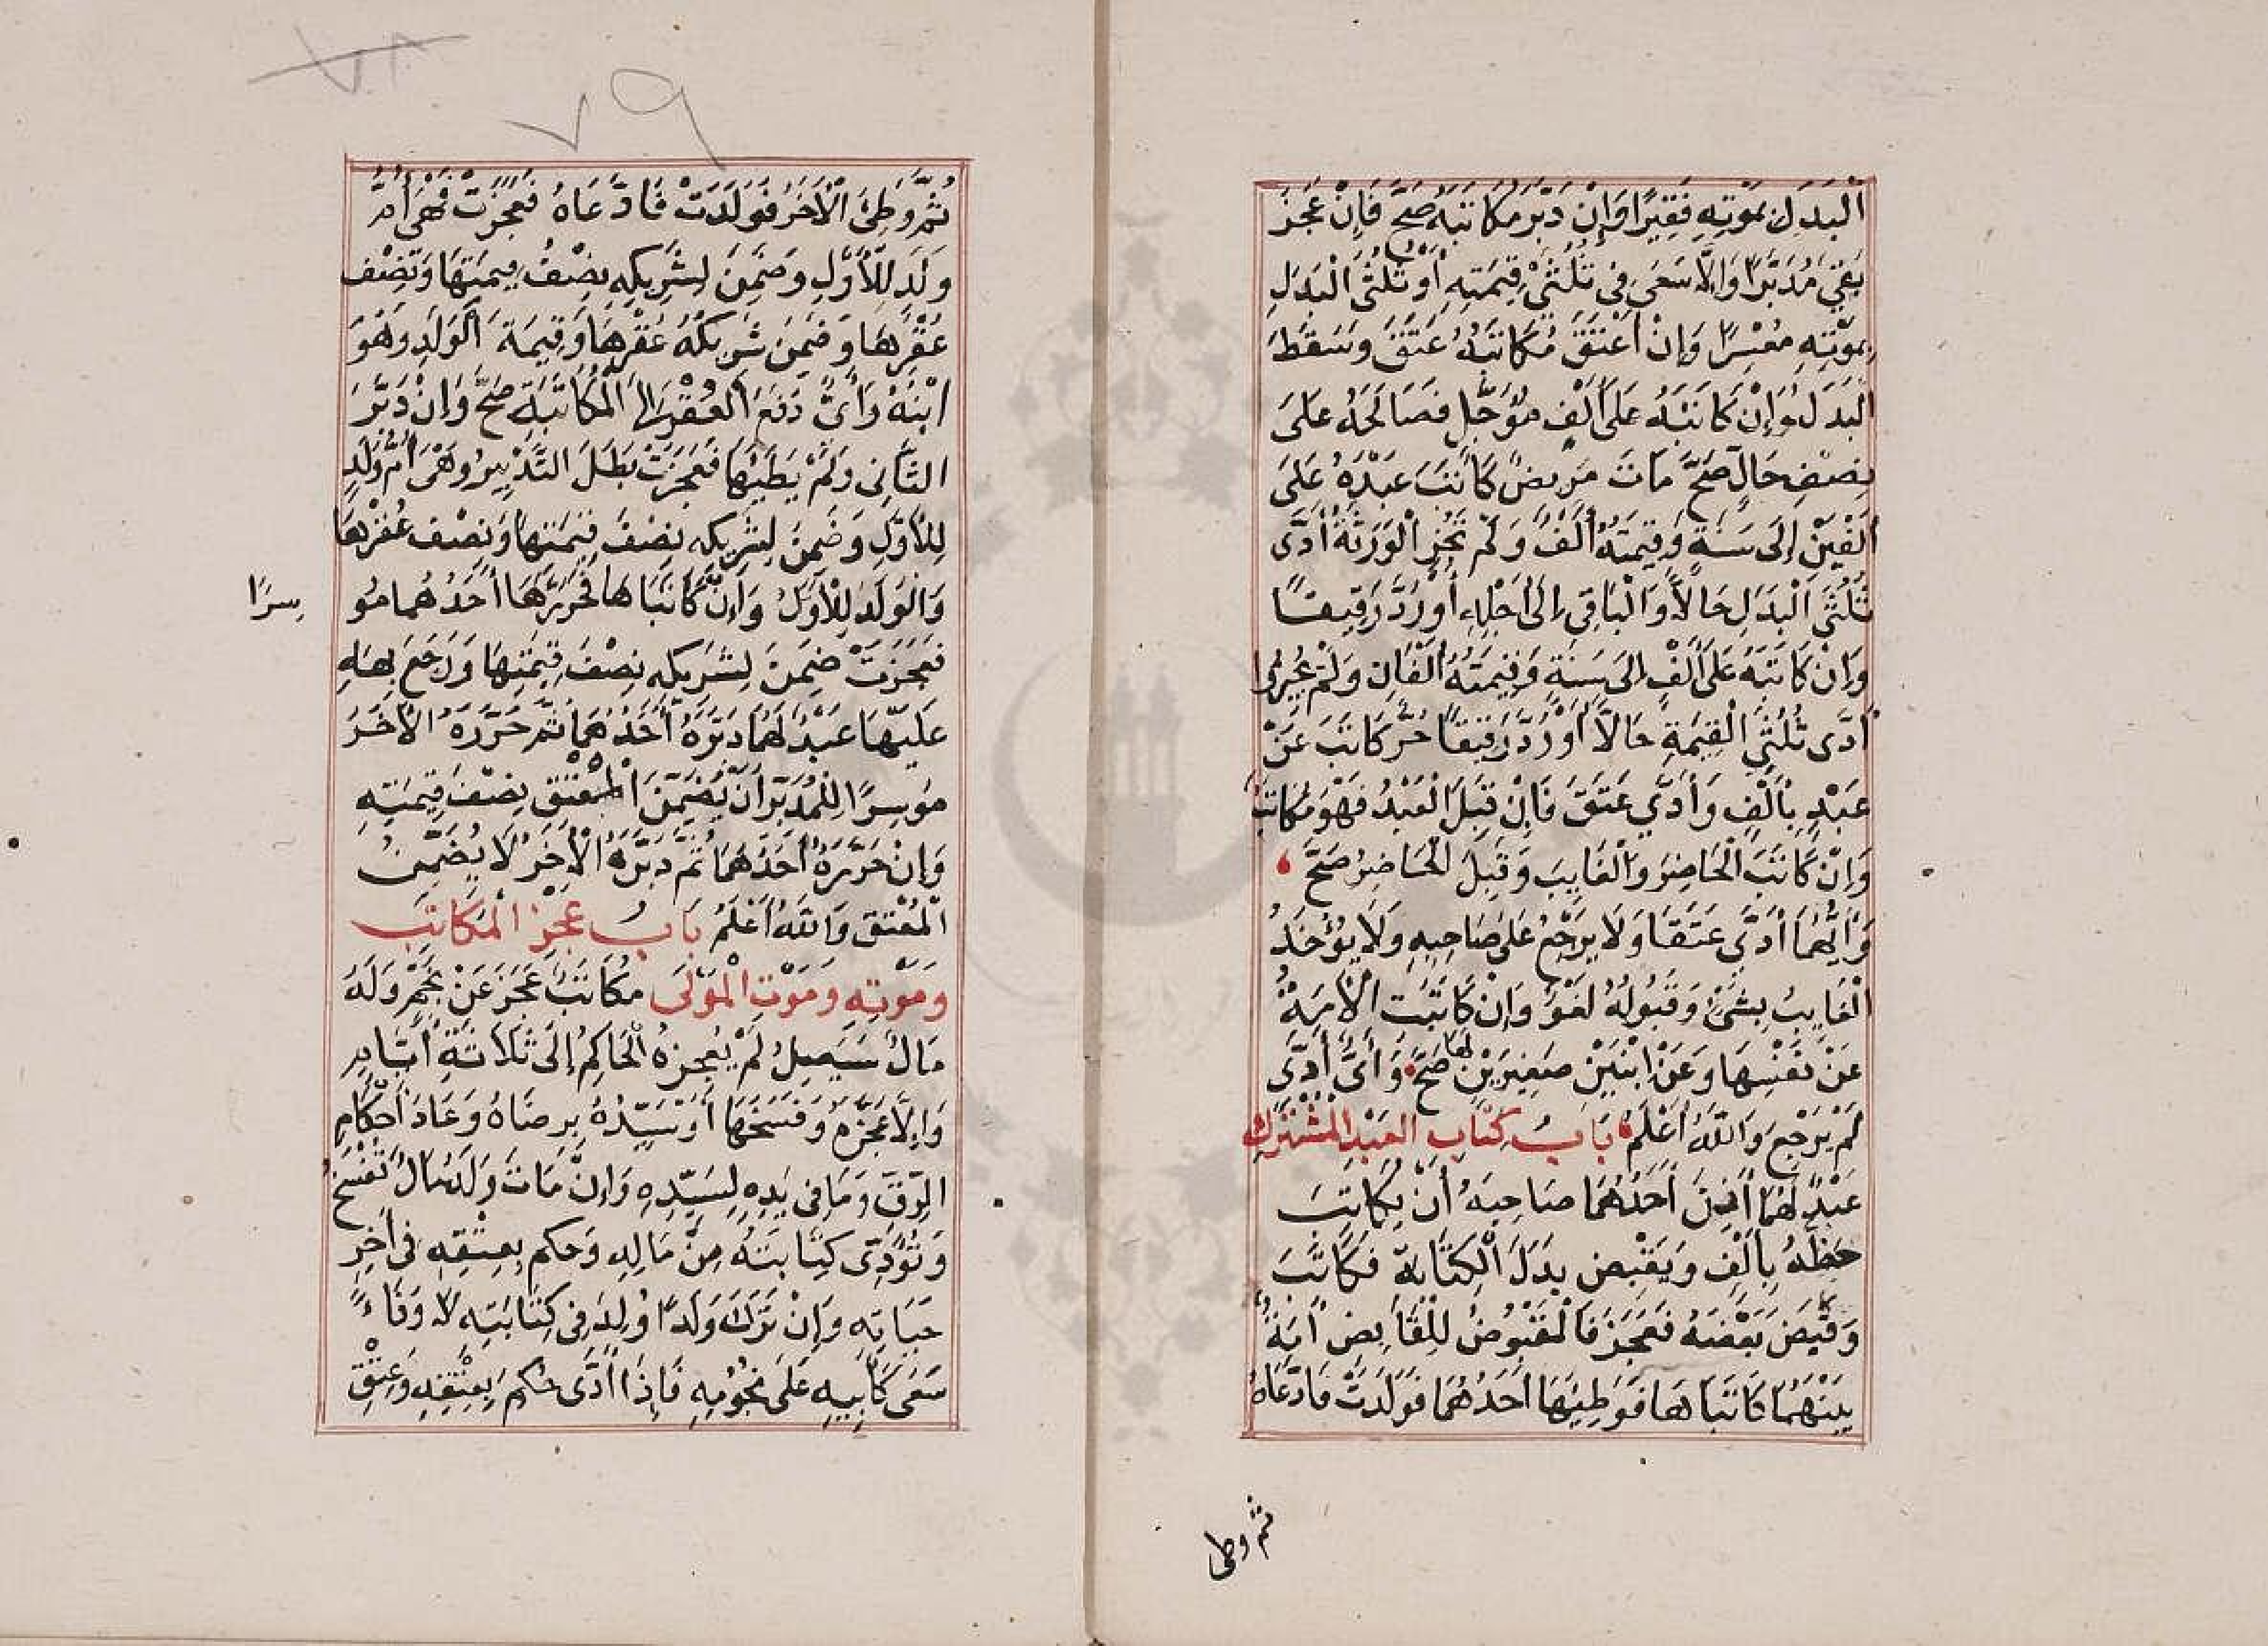 الْبَدَلِ بِمَوْتِهِ فَقِيرًا وَإِنْ دَبَّرَ مُكَاتَبَهُ صَحَّ فَإِنْ عَجَزَ
بَقِيَ مُدَبَّرًا وَإِلَّا سَعَى فِي ثُلُثَيْ قِيمَتِهِ أَوْ ثُلُثَيِ الْبَدَلِ
بِمَوْتِهِ مُعْسِرًا وَإِنْ أَعْتَقَ مُكَاتَبَهُ عَتَقَ وَسَقَطَ
الْبَدَلُ وَإِنْ كَاتَبَهُ عَلَى أَلْفٍ مُؤَجَّلٍ فَصَالَحَهُ عَلَى
نِصْفٍ حَالٍ صَحَّ مَاتَ مَرِيضٌ كَاتَبَ عَبْدَهُ عَلَى
أَلْفَيْنِ إِلَى سَنَةٍ وَقِيمَتُهُ أَلْفٌ وَلَمْ تُجِزِ الْوَرَثَةُ أَدَّى
ثُلُثَيِ الْبَدَلِ حَالًّا وَالْبَاقِي إِلَى أَجَلِهِ أَوْ رُدَّ رَقِيقًا
وَإِنْ كَاتَبَهُ عَلَى أَلْفٍ إِلَى سَنَةٍ وَقِيمَتُهُ أَلْفَانِ وَلَمْ يُجِيزُوا
أَدَّى ثُلُثَيِ الْقِيمَةِ حَالًّا أَوْ رُدَّ رَقِيقًا حُرٌّ كَاتَبَ عَنْ
عَبْدٍ بِأَلْفٍ وَأَدَّى عَتَقَ فَإِنْ قَبِلَ الْعَبْدُ فَهْوَ مُكَاتَبٌ
وَإِنْ كَاتَبَ الْحَاضِرَ وَالْغَايِبَ وَقَبِلَ الْحَاضِرُ صَحَّ
وَأَيُّهُمَا أَدَّى عَتَقَا وَلَا يَرْجِعُ عَلَى صَاحِبِهِ وَلَا يُؤْخَذُ
الْغَايِبُ بِشَيْءٍ وَقَبُولُهُ لَغْوٌ وَإِنْ كَاتَبَتِ الْأَمَةُ
عَنْ نَفْسِهَا وَعَنْ ابْنَيْنِ صَغِيرَيْنِ لها صَحَّ وَأَيٌّ أَدَّى
لَمْ يَرْجِعْ وَاللَّهُ أَعْلَمُ بَابُ كِتَابِ الْعَبْدِ الْمُشْتَرَكِ
عَبْدٌ لَهُمَا أَذِنَ أَحَدُهُمَا صَاحِبَهُ أَنْ يُكَاتِبَ
حَظَّهُ بِأَلْفٍ وَيَقْبِضَ بَدَلَ الْكِتَابَةِ فَكَاتَبَ
وَقَبَضَ بَعْضَهُ فَعَجَزَ فَالْمَقْبُوضُ لِلْقَابِضِ أَمَةٌ
بَيْنَهُمَا كَاتَبَاهَا فَوَطِئَهَا أَحَدُهُمَا فَوَلَدَتْ فَادَّعَاهُ
ثم وطى
٧٩
ثُمَّ وَطِئَ الْآخَرُ فَوَلَدَتْ فَادَّعَاهُ فَعَجَزَتْ فَهْيَ أُمُّ
وَلَدٍ لِلْأَوَّلِ وَضَمِنَ لِشَرِيكِهِ نِصْفَ قِيمَتِهَا وَنِصْفَ
عُقْرِهَا وَضَمِنَ شَرِيكُهُ عُقْرَهَا وَقِيمَةَ الْوَلَدِ وَهُوَ
ابْنُهُ وَأَيٌّ دَفَعَ الْعُقْرَ إِلَى الْمُكَاتَبَةِ صَحَّ وَإِنْ دَبَّرَ
الثَّانِي وَلَمْ يَطَئْهَا فَعَجَزَتْ بَطَلَ التَّدْبِيرُ وَهْيَ أُمُّ وَلَدٍ
لِلْأَوَّلِ وَضَمِنَ لِشَرِيكِهِ نِصْفَ قِيمَتِهَا وَنِصْفَ عُقْرِهَا
وَالْوَلَدُ لِلْأَوَّلِ وَإِنْ كَاتَبَاهَا فَحَرَّرَهَا أَحَدُهُمَا مُو
سِرًا
فَعَجَزَتْ ضَمِنَ لِشَرِيكِهِ نِصْفَ قِيمَتِهَا وَرَجَعَ بِهِ
عَلَيْهَا عَبْدٌ لَهُمَا دَبَّرَهُ أَحَدُهُمَا ثُمَّ حَرَّرَهُ الْآخَرُ
مُوسِرًا لِلْمُدَبِّرِ أَنْ يُضَمِّنَ الْمُعْتِقَ نِصْفَ قِيمَتِهِ
وَإِنْ حَرَّرَهُ أَحَدُهُمَا ثُمَّ دَبَّرَهُ الْآخَرُ لَا يُضَمِّنُ
الْمُعْتِقَ وَاللَّهُ أَعْلَمُ بَابُ عَجْزِ الْمُكَاتَبِ
وَمَوْتِهِ وَمَوْتِ الْمَوْلَى مُكَاتَبٌ عَجَزَ عَنْ نَجْمٍ وَلَهُ
مَالٌ سَيَصِلُ لَمْ يُعَجِّزْهُ الْحَاكِمُ إِلَى ثَلَاثَةِ أَيَّامٍ
وَإِلَّا عَجَّزَهُ وَفَسَخَهَا أَوْ سَيِّدُهُ بِرِضَاهُ وَعَادَ أَحْكَامُ
الرِّقِّ وَمَا فِي يَدِهِ لِسَيِّدِهِ وَإِنْ مَاتَ وَلَهُ مَالٌ تُفْسَخْ
وَتُؤَدَّى كِتَابَتُهُ مِنْ مَالِهِ وَحُكِمَ بِعِتْقِهِ فِي آخِرِ
حَيَاتِهِ وَإِنْ تَرَكَ وَلَدًا وُلِدَ فِي كِتَابَتِهِ لَا وَفَاءً
سَعَى كَأَبِيهِ عَلَى نُجُومِهِ فَإِذَا أَدَّى حُكِمَ بِعِتْقِهِ وَعِتْقِ